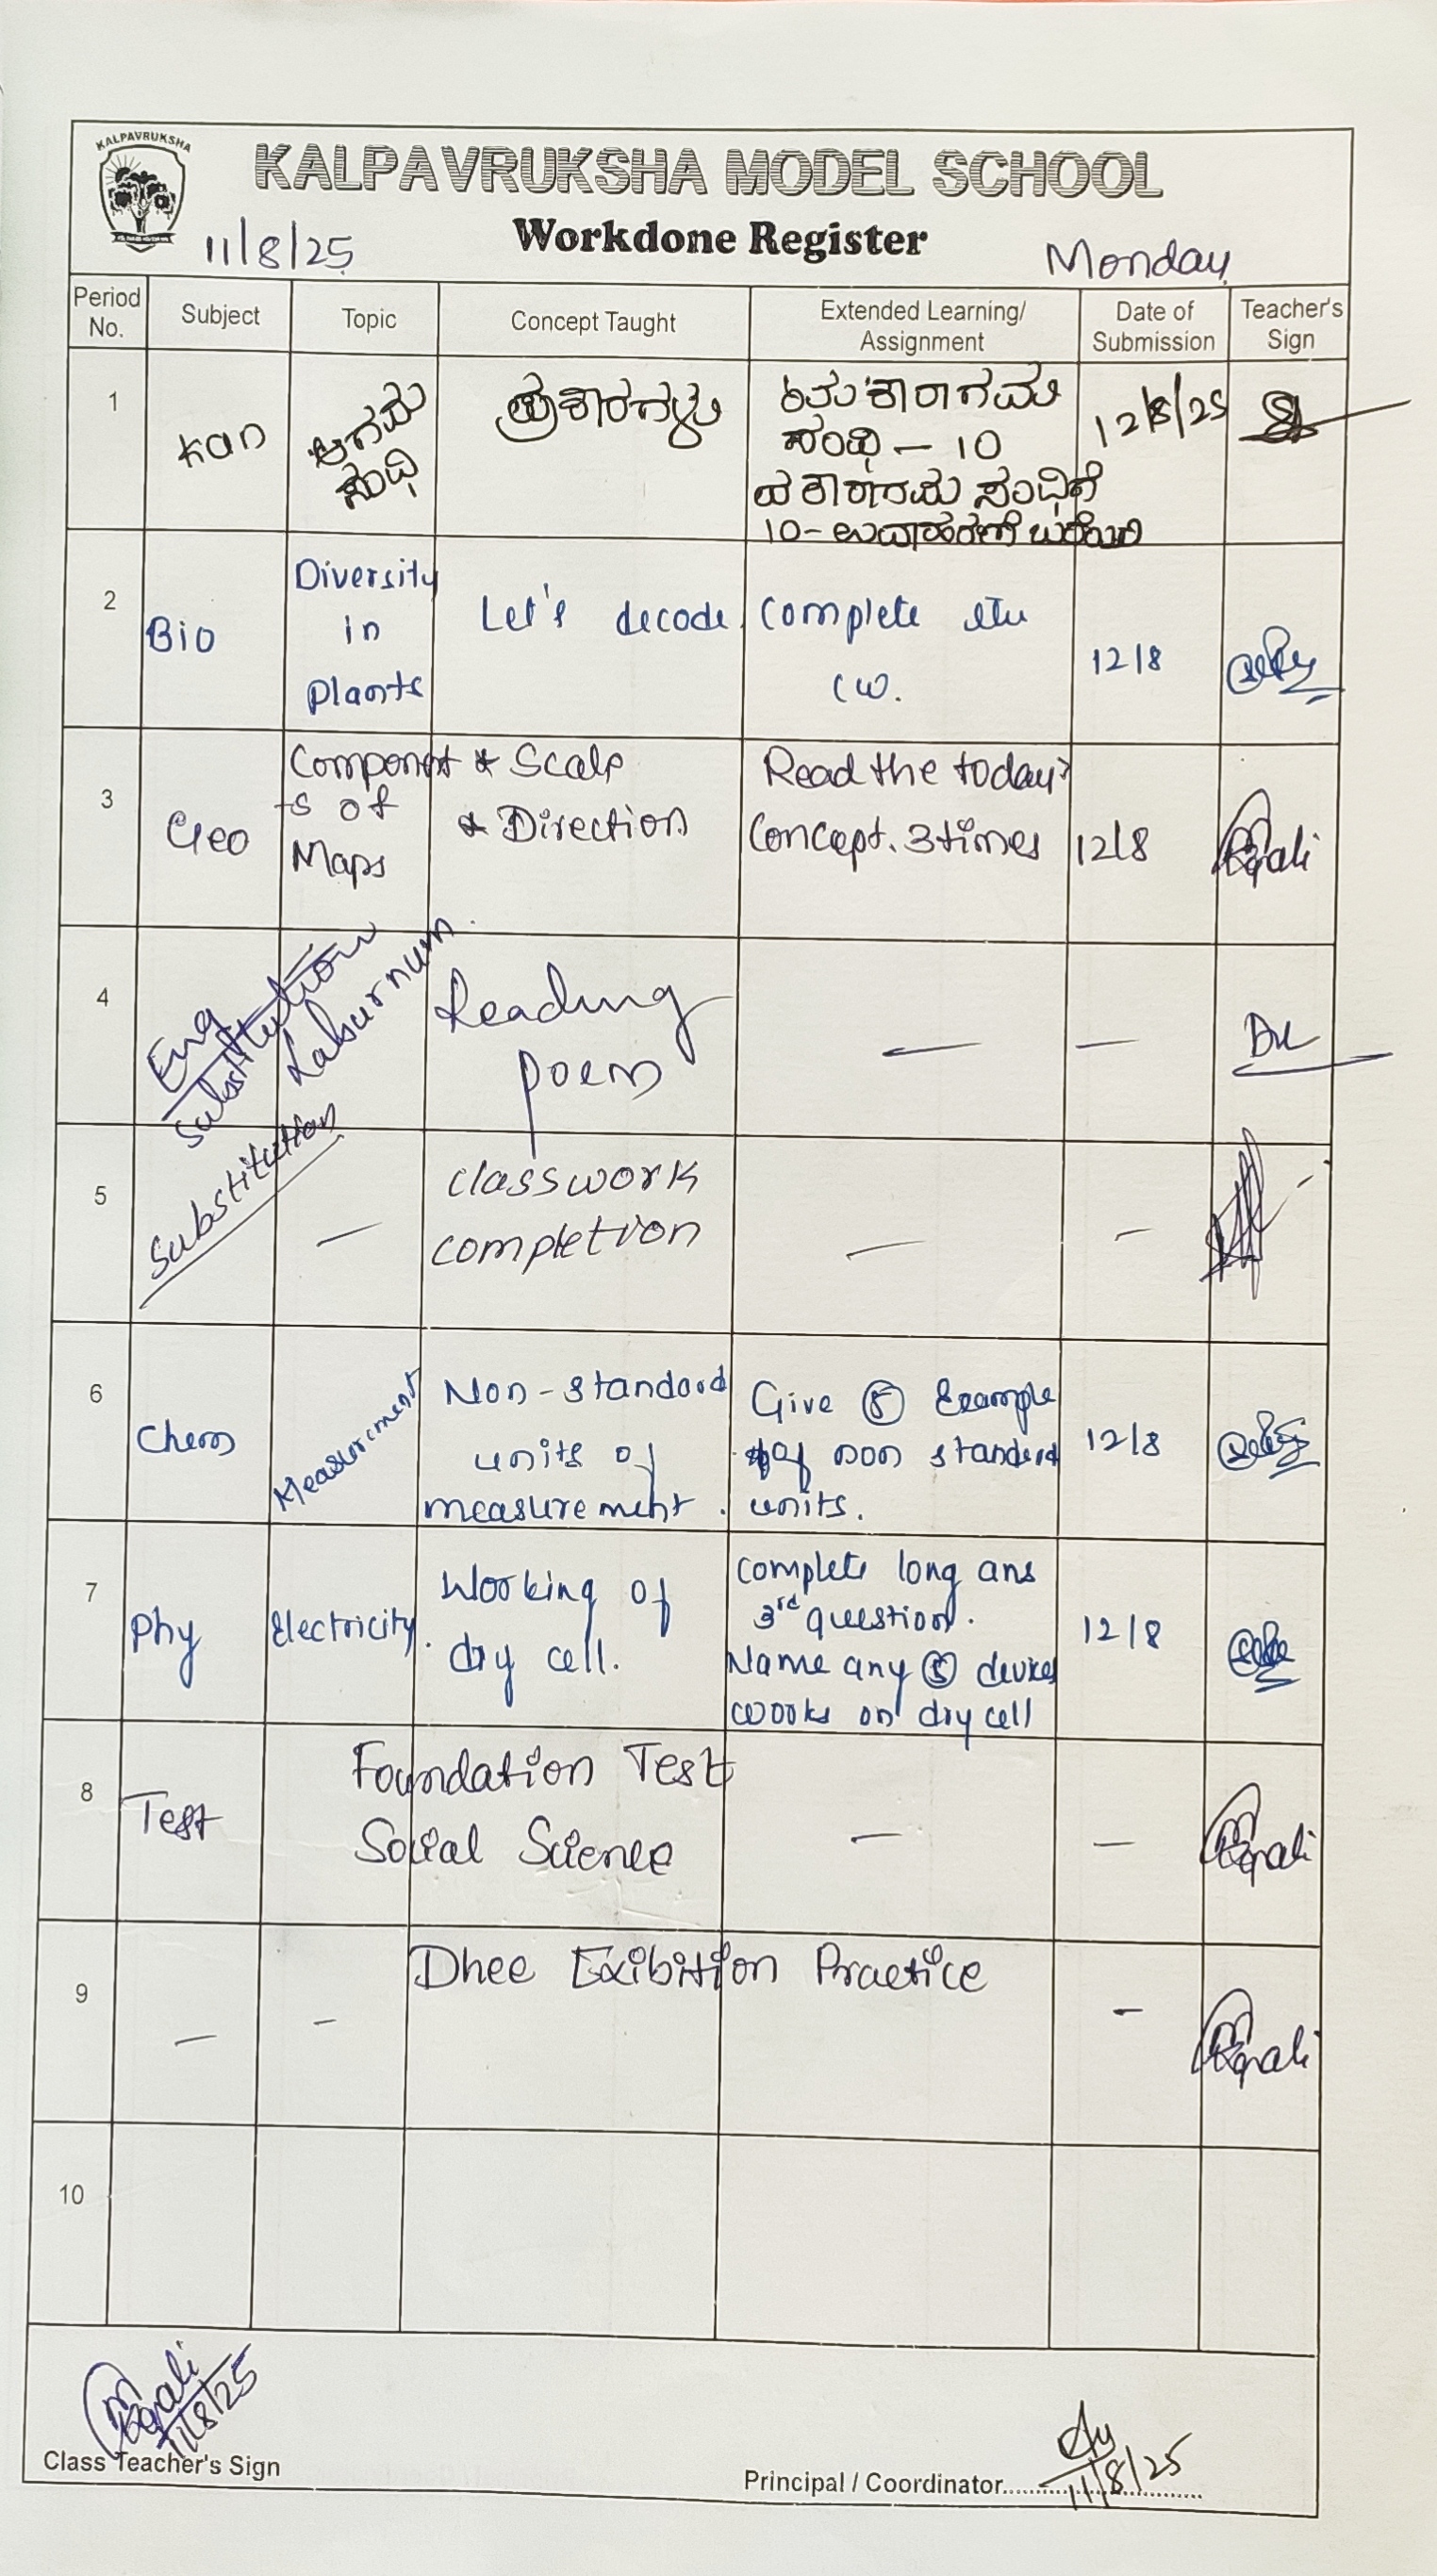 KALPAVRUKSHA
KALPAVRUKSHA MODEL SCHOOL
Workdone Register
11/8/25
Monday
Period No.
Subject
Topic
Concept Taught
Extended Learning/ Assignment
Date of Submission
Teacher's Sign
1
Kan
ಆಗಮ
ಸಂಧಿ
ಪ್ರಕಾರಗಳು
ಸಂಧಿ - 10
ಸಂಧಿಗೆ
10- ಉದಾಹರಣೆ ಬರೆಯಿರಿ
12/8/25
2
Bio
Diversity
in
plants
Let's decode
Complete
CW.
12/8
3
Geo
Component
-s of
Maps
* Scale
* Direction
Read the today's
Concept. 3 times
12/8
4
Eng
Substitution
Laburnum
Reading
poem
—
—
5
Substitution
—
classwork
completion
—
—
6
Chem
Measurement
Non-standard
units of
measurement.
Give 5 Example
of non standard
units.
12/8
7
Phy
Electricity.
Working of
dry cell.
Complete long ans
3rd question.
Name any 5 devices
works on dry cell
12/8
8
Test
Foundation Test
Social Science
—
—
9
—
—
Dhee Exibition Practice
-
10
11/8/25
Class Teacher's Sign
11/8/25
Principal / Coordinator